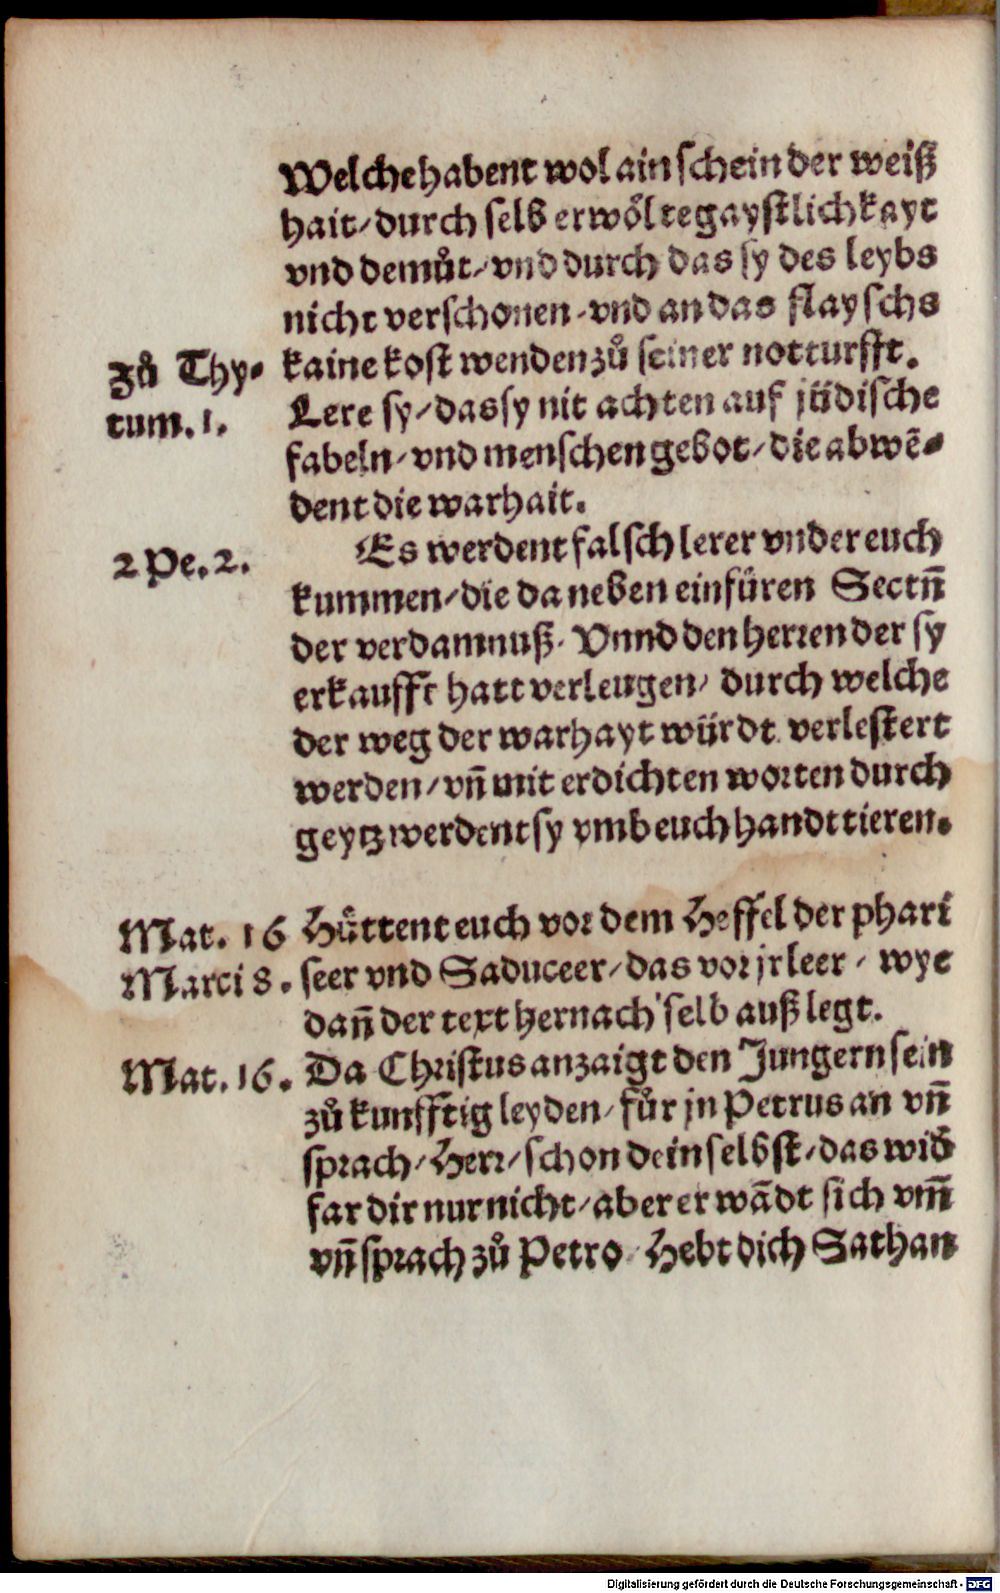 Welche habent wol ain schein der weiß
hait/ durch selb erwölte gaystlichkayt
vnd demůt/ vnd durch das sy des leybs
nicht verschonen/ vnd an das flayschs
kaine kost wenden zů seiner notturfft.
Zů Thy-
tum. 1.
Lere sy/ das sy nit achten auf jüdische
fabeln/ vnd menschen gebot/ die abwē-
dent die warhait.
2 Pe. 2.
Es werdent falsch lerer vnder euch
kummen/ die da neben einfüren Sectn̄
der verdamnuß. Vnnd den herren der sy
erkaufft hatt verleugen/ durch welche
der weg der warhayt würdt verlestert
werden/ vn̄ mit erdichten worten durch
geytz werdent sy vmb euch handttieren.
Mat. 16
Marci 8.
Hůttent euch vor dem Heffel der phari
seer vnd Saduceer/ das vor jr leer/ wye
dan̄ der text hernach selb auß legt.
Mat. 16.
Da Christus anzaigt den Jungern sein
zů kunfftig leyden/ fůr jn Petrus an vn̄
sprach/ Herr/ schon dein selbst/ das wid
far dir nur nicht/ aber er wādt sich vm̄
vn̄ sprach zů Petro/ Hebt dich Sathan
Digitalisierung gefördert durch die Deutsche Forschungsgemeinschaft - DFG